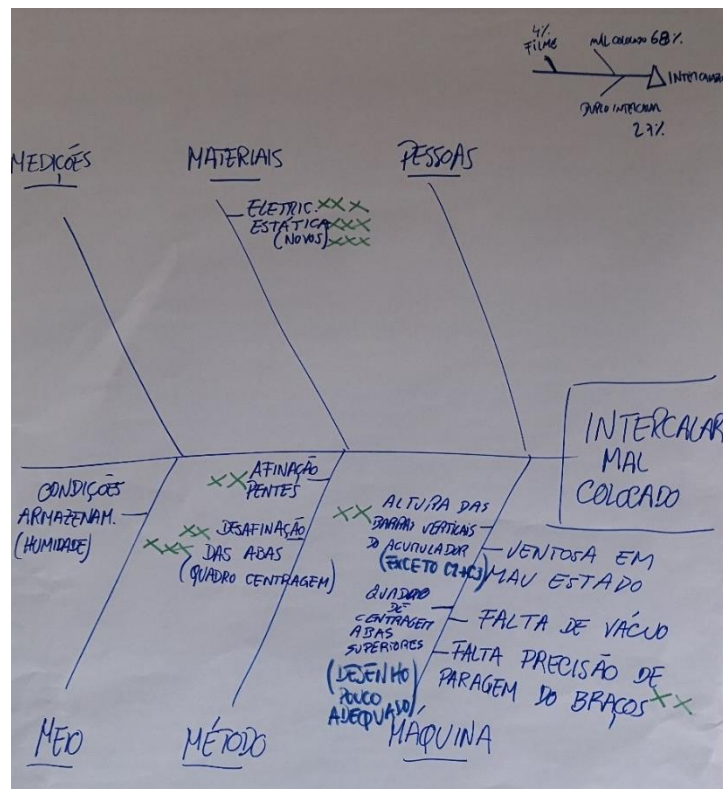 4%
FILME
MAL COLOCADO 68%
INTERCALAR
DUPLO INTERCALAR
27%
MEDIÇÕES
MATERIAIS
PESSOAS
ELETRIC. XXX
ESTÁTICA XXX
(NOVOS) XXX
INTERCALAR
MAL
COLOCADO
CONDIÇÕES
ARMAZENAM.
(HUMIDADE)
XX AFINAÇÃO
PENTES
XX DESAFINAÇÃO
XXX DAS ABAS
(QUADRO CENTRAGEM)
ALTURA DAS
XX BARRAS VERTICAIS
DO ACUMULADOR
(EXCETO C2+C3)
QUADRO
DE
CENTRAGEM
ABAS
SUPERIORES
(DESENHO
POUCO
ADEQUADO)
VENTOSA EM
MAU ESTADO
FALTA DE VÁCUO
FALTA PRECISÃO DE
PARAGEM DO BRAÇOS XX
MEIO
MÉTODO
MÁQUINA